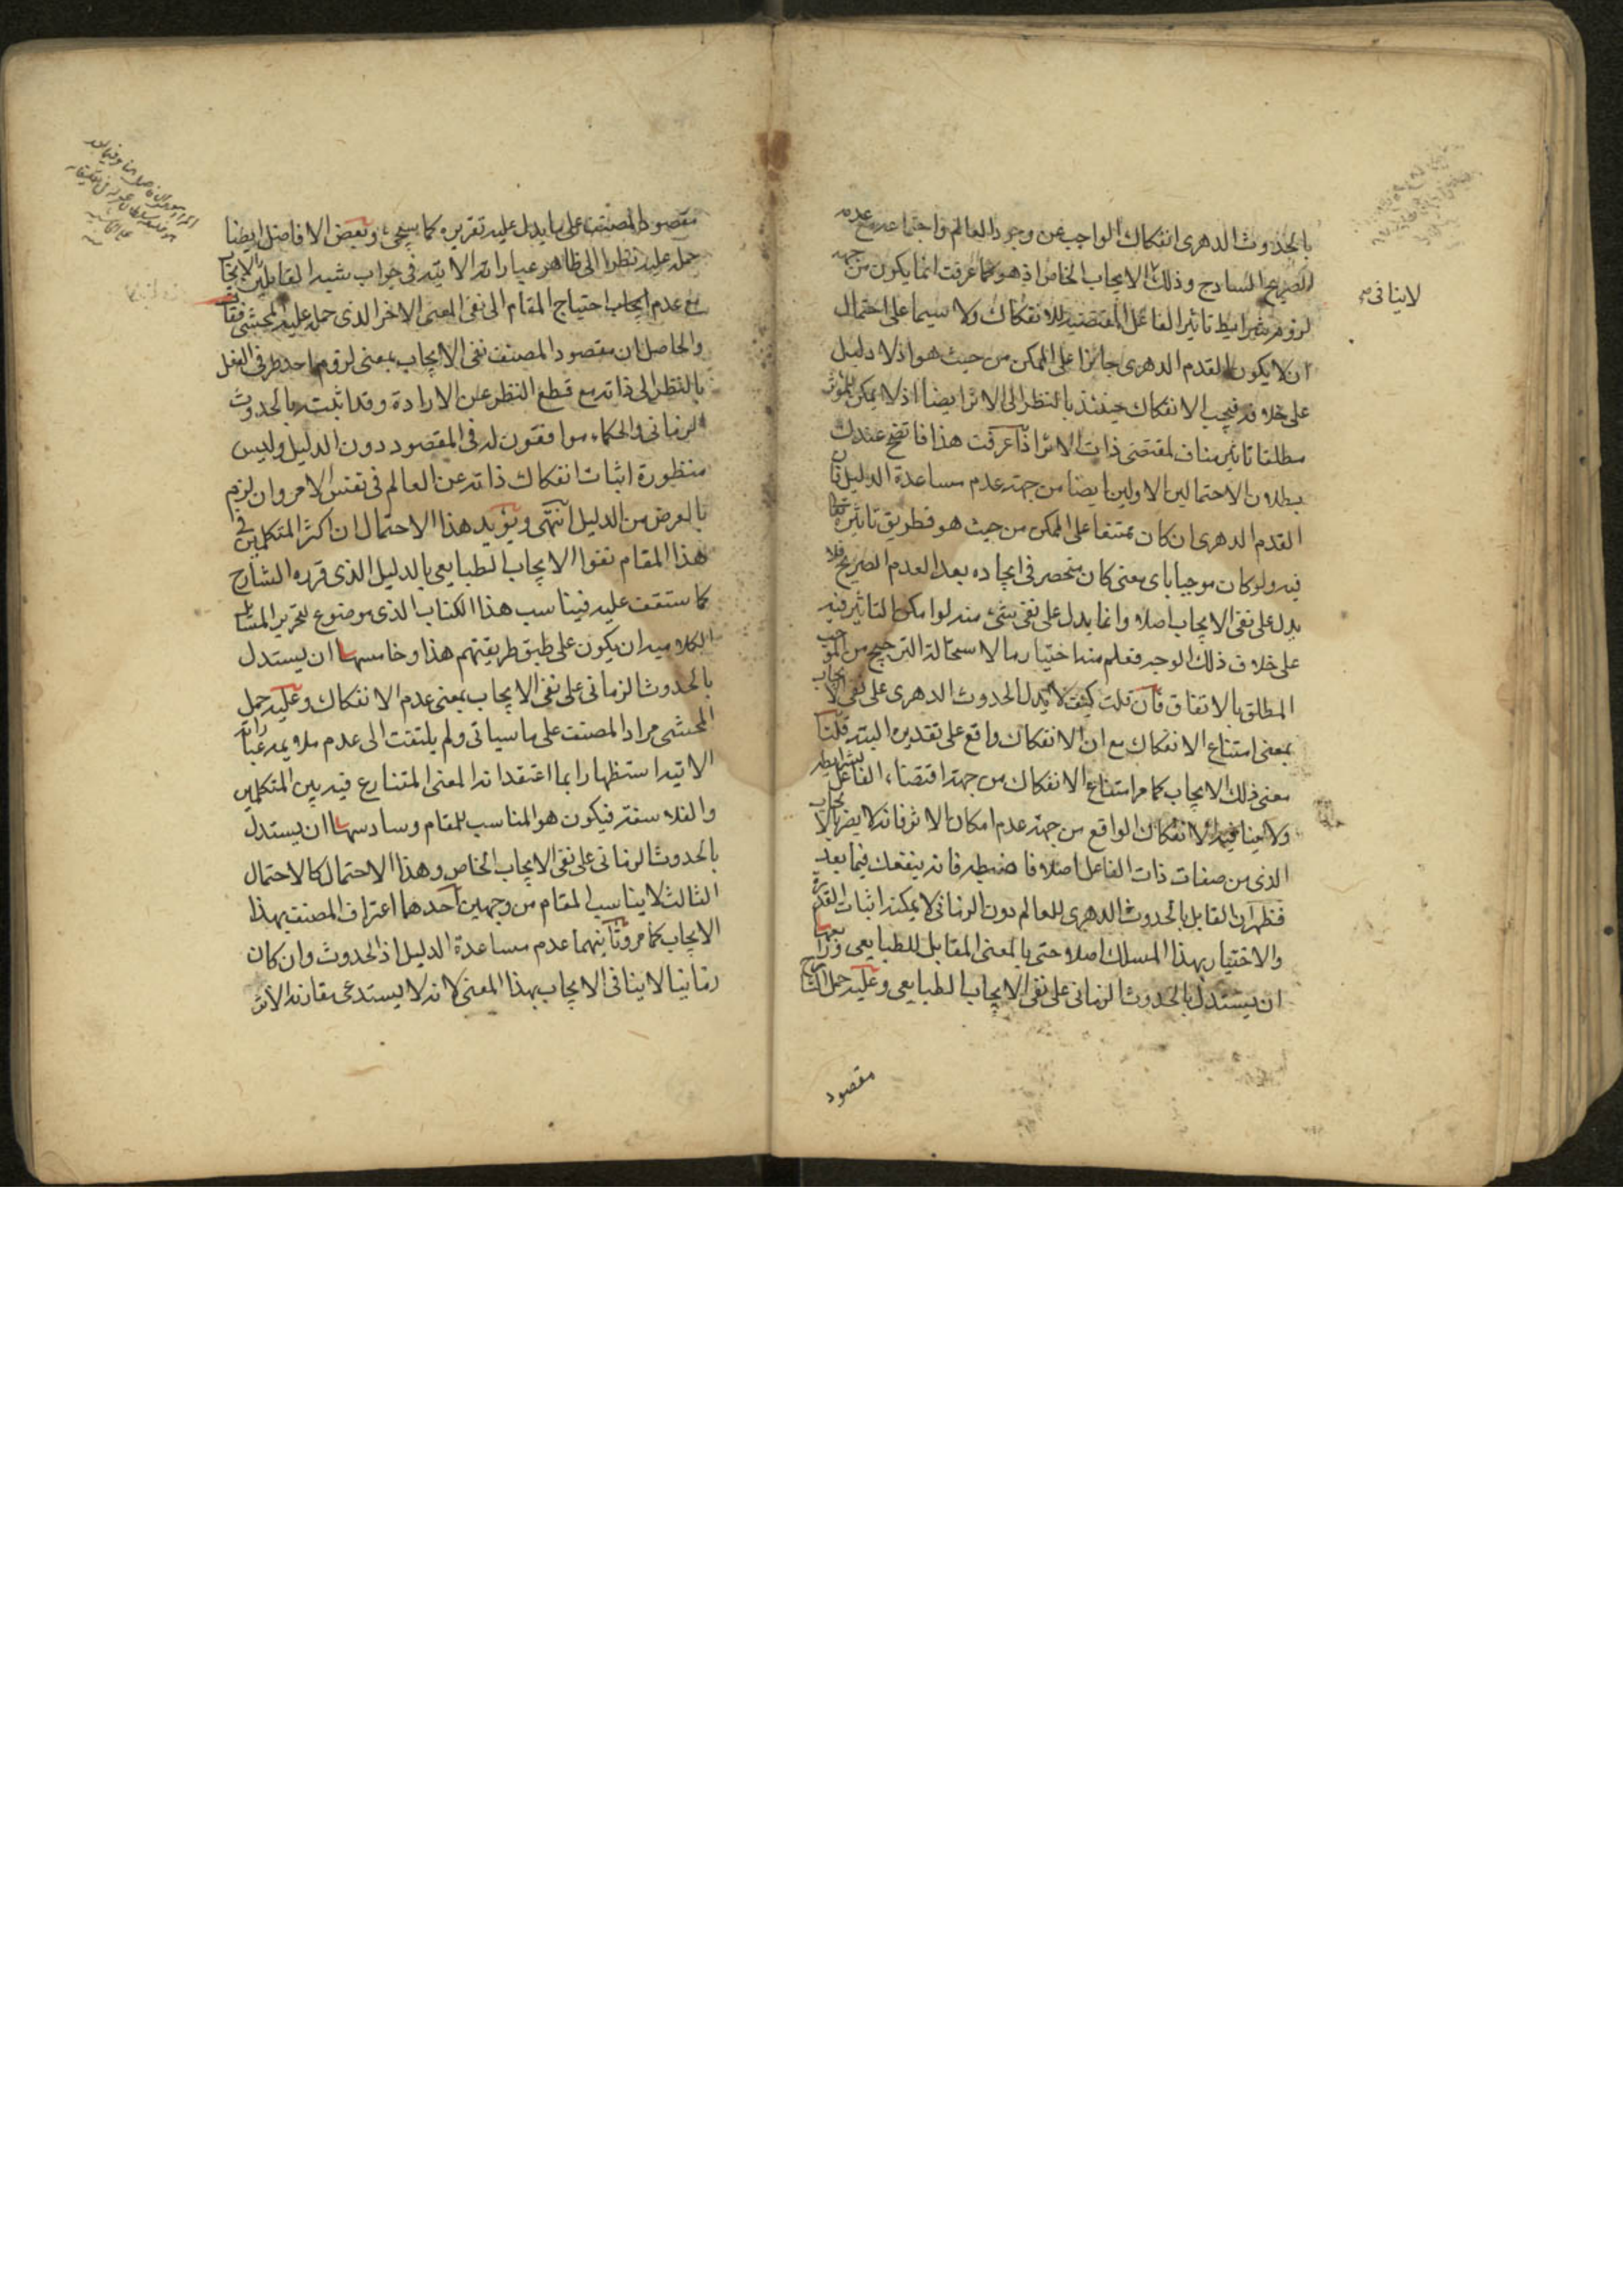 بالحدوث الدهری انفکاک الواجب عن وجود العالم واجتماعه مع عدمه
الصریح الساذج وذلک الایجاب الخاص اذ هو کما عرفت انما یکون من جهة
لاینافی
لزوم شرایط تاثیر الفاعل المقتضیه للانفکاک ولا سیما علی احتمال
ان لا یکون القدم الدهری جائزا علی الممکن من حیث هو اذ لا دلیل
علی خلافه فیجب الانفکاک حینئذ بالنظر الی الاثر ایضا اذ لا یمکن للمؤثر
مطلقا تاثیر مناف لمقتضی ذات الاثر اذا عرفت هذا فاتضح عندک
بطلان الاحتمالین الاولین ایضا من جهة عدم مساعدة الدلیل فان
القدم الدهری ان کان ممتنعا علی الممکن من حیث هو فطریق تاثیره تعالی
فیه ولو کان موجبا بای معنی کان منحصر فی ایجاده بعد العدم الصریح فلا
یدل علی نفی الایجاب اصلا وانما یدل علی نفی شیء منه لو امکن التاثیر فیه
علی خلاف ذلک الوجه فعلم منه اختیار ما لاستحالة الترجیح من الموجب
المطلق بالاتفاق فان قلت کیف لا یدل الحدوث الدهری علی نفی الایجاب
بمعنی امتناع الانفکاک مع ان الانفکاک واقع علی تقدیره البته قلنا
معنی ذلک الایجاب کما مر امتناع الانفکاک من جهة اقتضاء الفاعل بشرایطه
ولا ینافیه الانفکاک الواقع من جهة عدم امکان الاثر فانه لا یضر بالایجاب
الذی من صفات ذات الفاعل اصلا فاضبطه فانه ینفعک فیما بعد
فظهر ان القایل بالحدوث الدهری للعالم دون الزمانی لا یمکنه اثبات القدرة
والاختیار بهذا المسلک اصلا حتی بالمعنی المقابل للطبایعی ورابعها
ان یستدل بالحدوث الزمانی علی نفی الایجاب الطبایعی وعلیه حمل الشارح
مقصود
مقصود المصنف علی ما یدل علیه تقریره کما سیجیء وبعض الافاضل ایضا
حمله علیه نظرا الی ظاهر عباراته الاتیه فی جواب شبه القایلین بالایجاب
مع عدم ایجاب احتیاج المقام الی نفی المعنی الاخر الذی حمله علیه المحشی فقال
والحاصل ان مقصود المصنف نفی الایجاب بمعنی لزوم احد طرفی الفعل
بالنظر الی ذاته مع قطع النظر عن الارادة وقد اثبته بالحدوث
الزمانی والحکماء موافقون له فی المقصود دون الدلیل ولیس
منظوره اثبات انفکاک ذاته عن العالم فی نفس الامر وان لزم
بالعرض من الدلیل انتهی ویؤید هذا الاحتمال ان اکثر المتکلمین فی
هذا المقام نفوا الایجاب الطبایعی بالدلیل الذی قرره الشارح
کما ستقف علیه فیناسب هذا الکتاب الذی موضوع لتحریر المسائل
الکلامیه ان یکون علی طبق طریقتهم هذا وخامسها ان یستدل
بالحدوث الزمانی علی نفی الایجاب بمعنی عدم الانفکاک وعلیه حمل
المحشی مراد المصنف علی ما سیاتی ولم یلتفت الی عدم ملایمه عباراته
الاتیه استظهارا بما اعتقد انه المعنی المتنازع فیه بین المتکلمین
والفلاسفة فیکون هو المناسب للمقام وسادسها ان یستدل
بالحدوث الزمانی علی نفی الایجاب الخاص وهذا الاحتمال کالاحتمال
الثالث لا یناسب المقام من وجهین احدهما اعتراف المصنف بهذا
الایجاب کما مر وثانیهما عدم مساعدة الدلیل اذ الحدوث وان کان
زمانیا لا ینافی الایجاب بهذا المعنی لانه لا یستدعی مقارنة الاثر